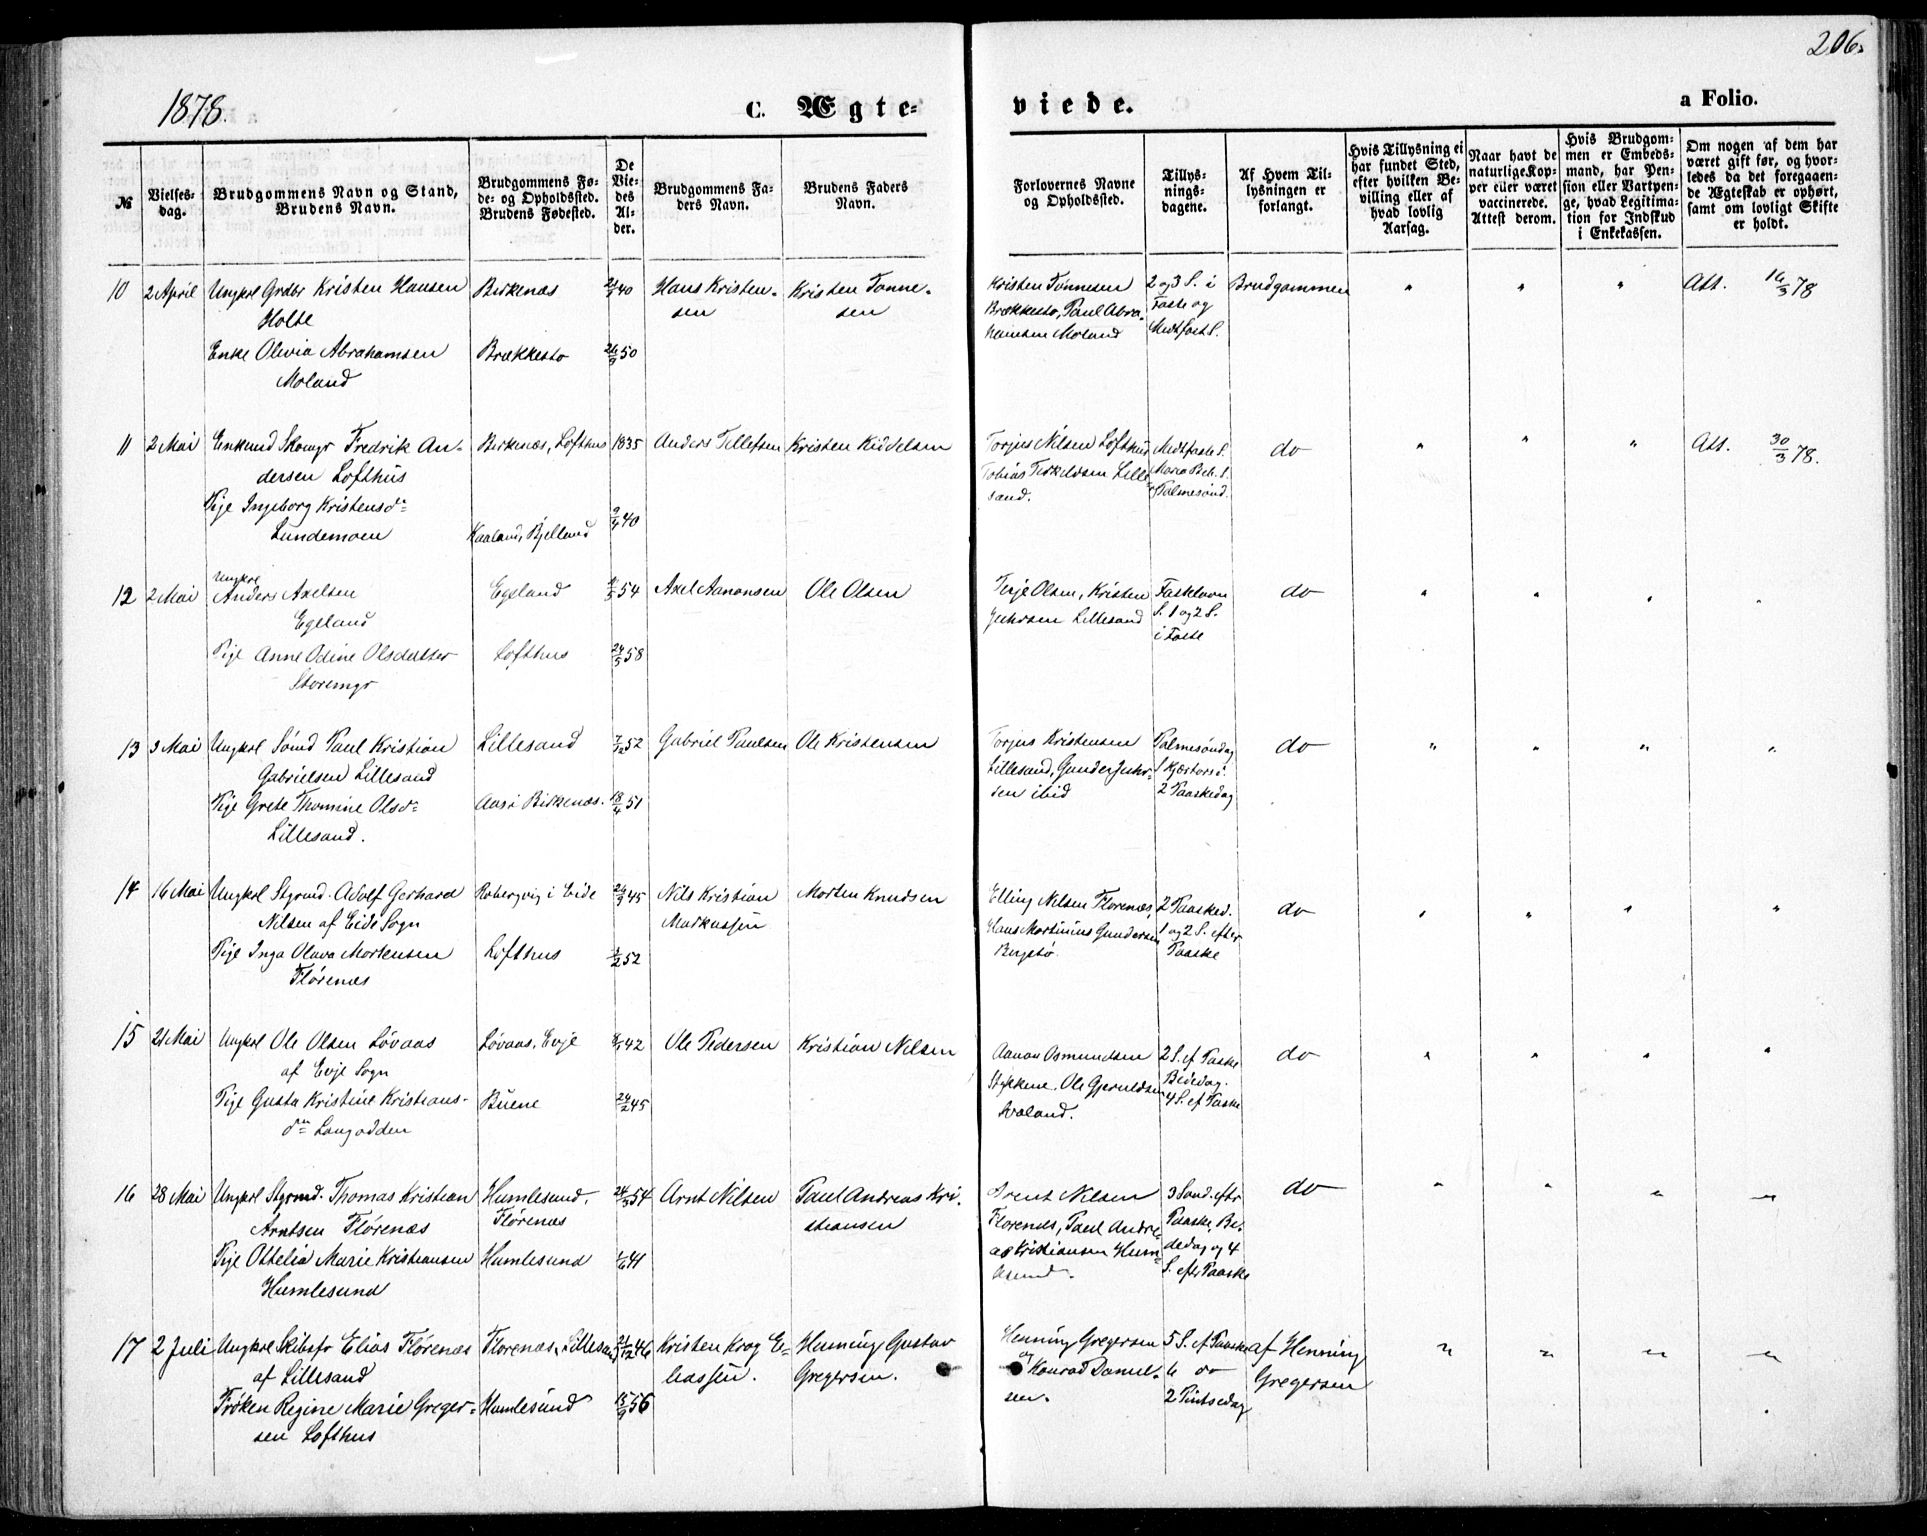 206.
1878.
C. Ægteviede.
a Folio.
№
Vielsesdag.
Brudgommens Navn og Stand, Brudens Navn.
Brudgommens Føde- og Opholdssted. Brudens Fødested.
De Viedes Alder.
Brudgommens Faders Navn.
Brudens Faders Navn.
Forlovernes Navne og Opholdssted.
Tillysningsdagene.
Af Hvem Tillysningen er forlangt.
Hvis Tillysning ei har fundet Sted, efter hvilken Bevilling eller af hvad lovlig Aarsag.
Naar havt de naturlige Kopper eller været vaccinerede. Attest derom.
Hvis Brudgommen er Embedsmand, har Pension eller Vartpenge, hvad Legitimation for Indskud i Enkekassen.
Om nogen af dem har været gift før, og hvorledes da det foregaaende Ægteskab er ophørt, samt om lovligt Skifte er holdt.
10 2 April Ungkrl Grdbr Kristen Hansen Birkenæs 40 Hans Kristen- Kristen Tønne- Kristen Tønnesen 2 og 3 S. i Brudgommen " " " Att. 16/3 78
Holte sen sen Brækkestø, Paul Abra- Faste og
hamsen Moland Midtfaste S.
Enke Olivia Abrahamsen Brækkestø 26/9 50
Moland
11 2 Mai Enkmd Skomgr Fredrik An- Birkenæs, Lofthus 1835 Anders Tellefsen Kristen Kiddelsen Torjus Nilsen Lofthus Midtfaste S. do " " " Att. 30/3 78.
dersen Lofthus Tobias Terkelsen Lille- Maria Beb.
sand. Palmesønd.
Pige Ingeborg Kristensdr
Lundemoen Kaaland, Bjelland 40
12 2 Mai Ungkrl
Anders Axelsen Egeland 54 Axel Aanonsen Ole Olsen Terje Olsen, Kristen Fastelavn do " " " "
Egeland Jahrsen Lillesand S. 1 og 2 S.
i Faste
Pige Anne Odine Olsdatter Lofthus 24/5 58
Storemyr
13 3 Mai Ungkrl Sømd Paul Kristian Lillesand 7/12 52 Gabriel Paulsen Ole Kristensen Torjus Kristensen Palmesøndag do " " " "
Gabrielsen Lillesand Lillesand, Gunder Jahr- Skjærtorsd.
sen ibid 2 Paaskedag
Pige Grete Thomine Olsdr Aas i Birkenæs. 18/4 51
Lillesand.
14 16 Mai Ungkrl Styrmd. Adolf Gerhard Robergvig i Eide 45 Nils Kristian Morten Knudsen Elling Nilsen Flørenæs, 2 Paasked. do " " " "
Nilsen af Eide Sogn Markussen Hans Martinius Gundersen 1 og 2 S. efter
Paaske
Pige Inga Olava Mortensen Lofthus 52
Flørenæs
15 21 Mai Ungkrl Ole Olsen Løvaas Løvaas, Evje 42 Ole Pedersen Kristian Nilsen Aanon Osmundsen 2 S. ef Paaske do " " " "
af Evje Sogn Støkkene, Ole Gjeruldsen Bededag.
4 S. ef Paaske
Pige Gusta Kristine Kristians- Buene 24/2 45
dr Langodden
16 28 Mai Ungkrl Styrmd. Thomas Kristian Humlesund, 24/3 54 Arnt Nilsen Paul Andreas Kri- Arent Nilsen 3 Sønd. eftr do " " " "
Arntsen Flørenæs Flørenæs stiansen Flørenæs, Paul Andre- Paaske, Be-
as Kristiansen Hum- dedag og 4
lesund. S. efter Paaske
Pige Ottelia Marie Kristiansen Humlesund
Humlesund
17 2 Juli Ungkrl Skibsfr Elias Flørenæs Flørenæs, Lillesand 21/12 46 Kristen Krog E- Henning Gustav Henning Gregersen 5 S. ef Paaske af Henning " " " "
af Lillesand liassen. Gregersen. og Konrad Daniel- 6 do Gregersen
sen. 2 Pintsedag
Frøken Regine Marie Greger- Humlesund 15/9 56
sen Lofthus